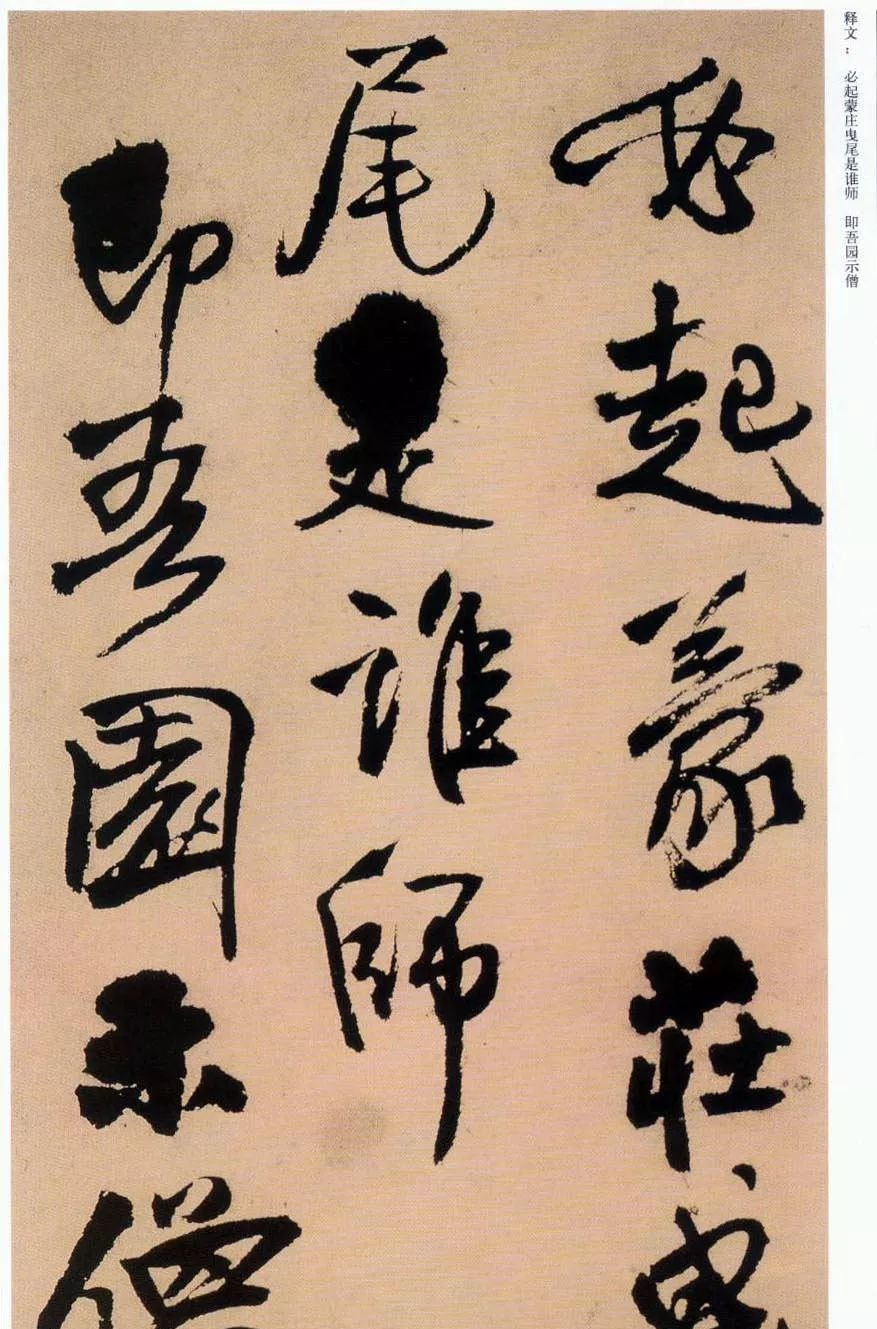 释文： 必起蒙庄曳尾是谁师 即吾园示僧
必起蒙莊曳
尾是誰師
即吾園示僧